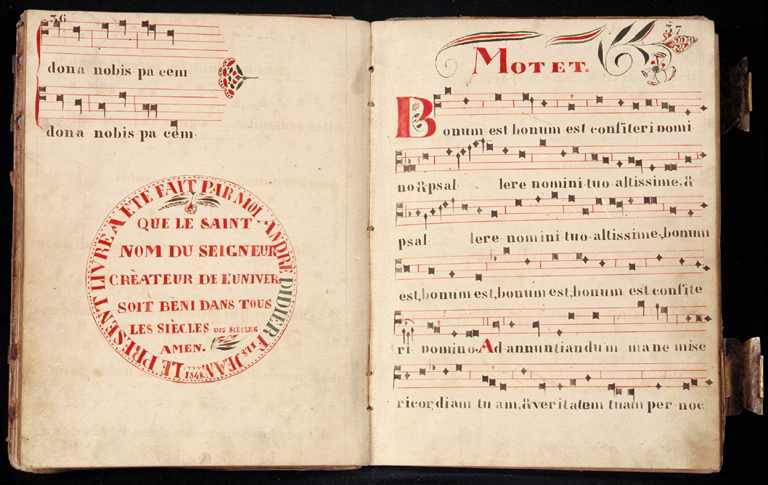 36
dona nobis pa cem.
dona nobis pa cem.
LE PRÉSENT LIVRE A ÉTÉ FAIT PAR MOI ANDRÉ DIDIER Fils JEAN, 1848
QUE LE SAINT
NOM DU SEIGNEUR
CRÈATEUR DE L'UNIVER
SOIT BÈNI DANS TOUS
LES SIÈCLES DES SIÈCLES
AMEN.
37
MOTET.
Bonum est bonum est confiteri nomi
no & psal lere nomini tuo altissime, &
psal lere nomini tuo altissime, bonum
est, bonum est, bonum est, bonum est confite
ri Domino. Ad annuntiandum mane mise
ricor, diam tu am, & veritatem tuam per noc